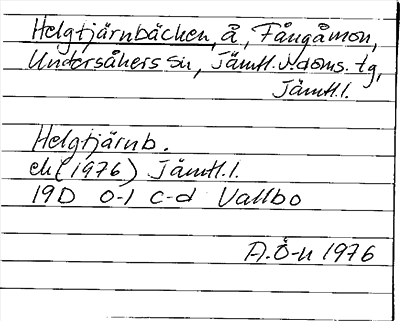 Helgtjärnbäcken, å, Fångåmon,
Undersåkers sn, Jämtl. ndoms. tg,
Jämtl. l.
Helgtjärnb.
ek (1976) Jämtl. l.
19D 0-1 c-d Vallbo
A.Ö-n 1976